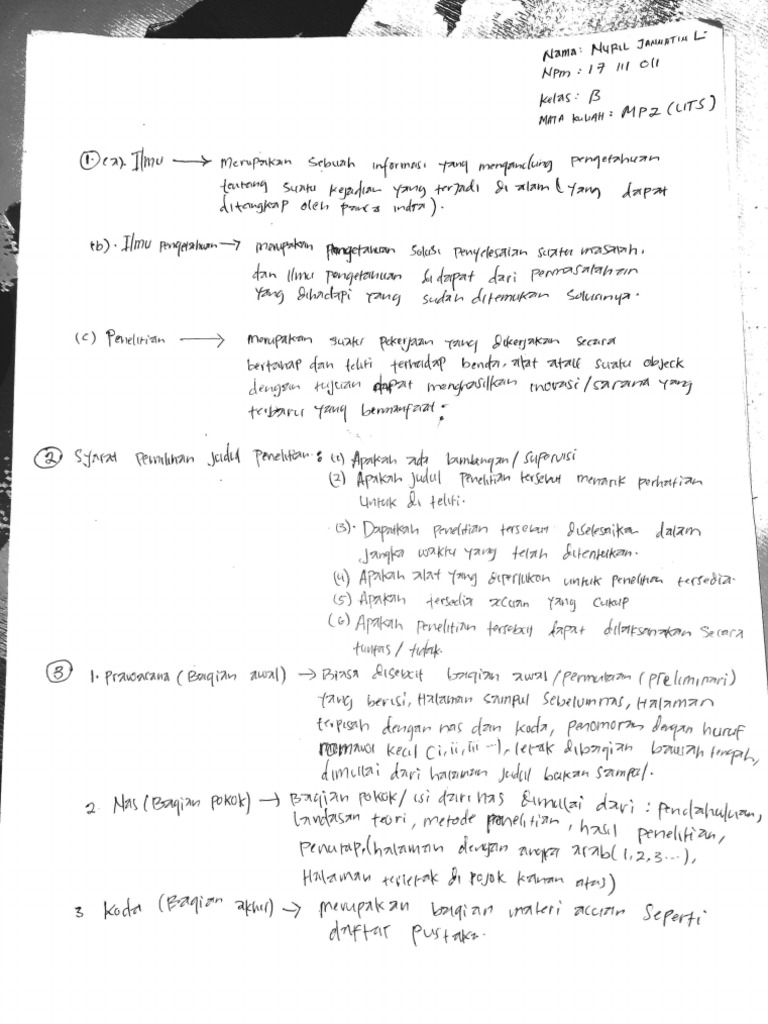 Nama : NURIL JANNATIN L.
Npm : 17 111 011
Kelas : B
MATA KULIAH : MPZ (LITS)
1. (a). Ilmu → Merupakan sebuah informasi yang mengandung pengetahuan
tentang suatu kejadian yang terjadi di alam (yang dapat
ditangkap oleh panca indra).
(b). Ilmu pengetahuan → merupakan pengetahuan solusi penyelesaian suatu masalah.
dan Ilmu pengetahuan di dapat dari permasalahan
yang dihadapi yang sudah ditemukan solusinya.
(c) Penelitian → merupakan suatu pekerjaan yang dikerjakan secara
bertahap dan teliti terhadap benda, alat atau suatu objeck
dengan tujuan dapat menghasilkan inovasi/sarana yang
terbaru yang bermanfaat.
2 Syarat Pemilihan judul penelitian : (1) Apakah ada bimbingan/supervisi
(2) Apakah judul penelitian tersebut menarik perhatian
untuk di teliti.
(3). Dapatkah penelitian tersebut diselesaikan dalam
jangka waktu yang telah ditentukan.
(4) Apakah alat yang diperlukan untuk penelitian tersedia.
(5) Apakah tersedia acuan yang cukup
(6) Apakah penelitian tersebut dapat dilaksanakan secara
tuntas/tidak.
3 1. Prawacana (Bagian awal) → Biasa disebut bagian awal/permulaan (preliminari)
yang berisi, Halaman sampul sebelum nas, Halaman
terpisah dengan nas dan koda, penomoran dengan huruf
romawi kecil (i, ii, iii ...), letak dibagian bawah tengah,
dimulai dari halaman judul bukan sampul.
2. Nas (Bagian pokok) → Bagian pokok/isi dari nas dimulai dari : pendahuluan,
landasan teori, metode penelitian, hasil penelitian,
penutup, (halaman dengan angka arab (1,2,3...),
Halaman terletak di pojok kanan atas)
3 Koda (Bagian akhir) → merupakan bagian materi accuan seperti
daftar pustaka.